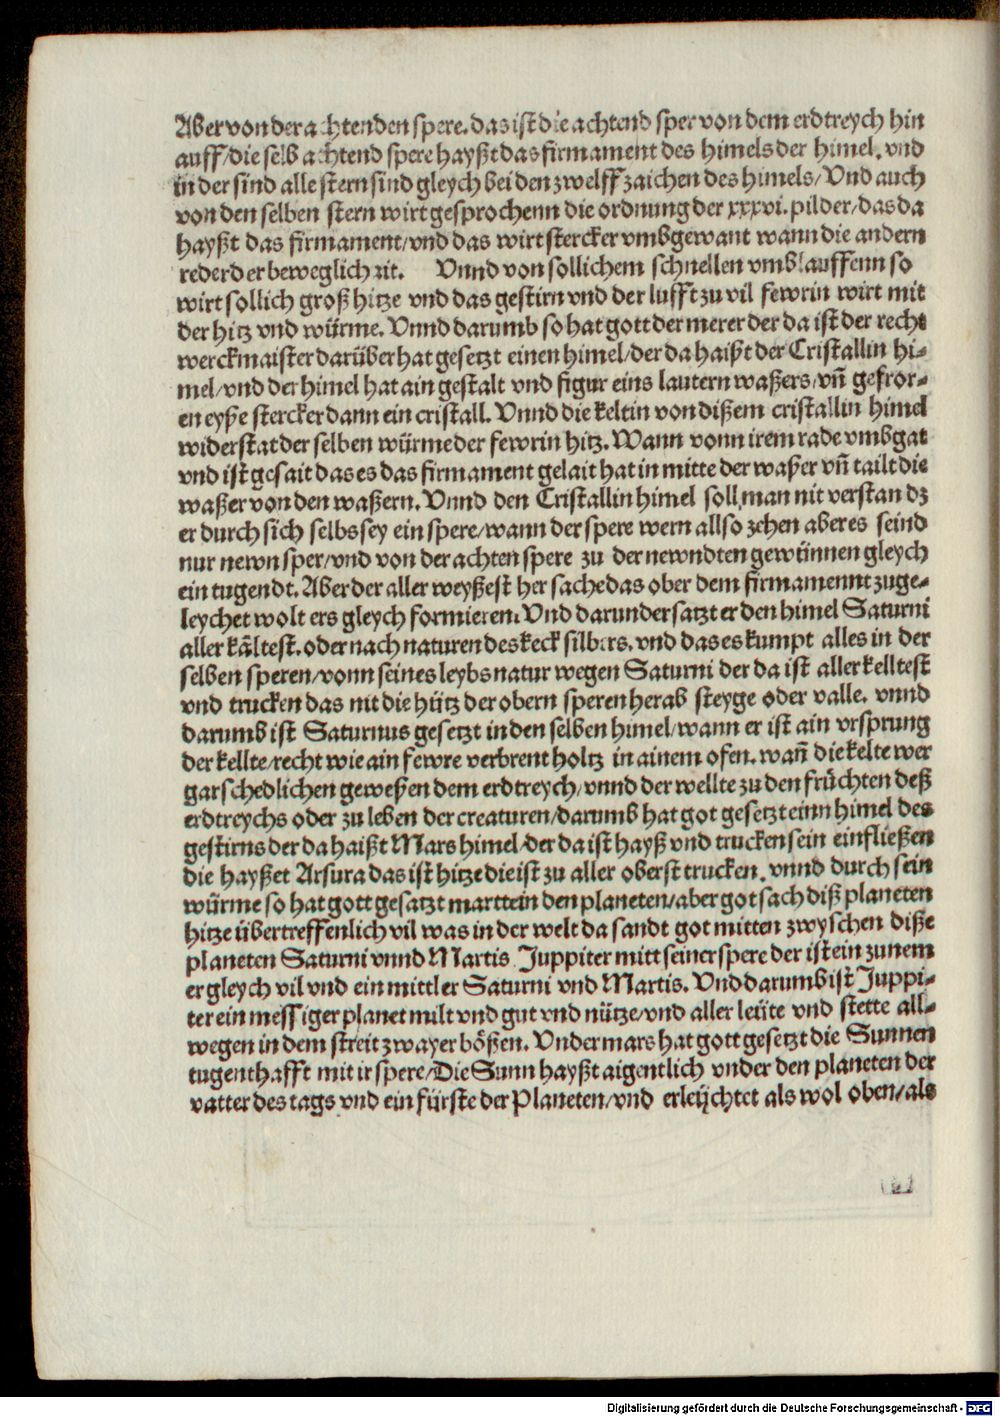 Aber von der achtenden spere. das ist die achtend sper von dem erdtreych hin
auff/die selb achtend spere hayßt das firmament des himels der himel. vnd
in der sind alle stern sind gleych bei den zwelff zaichen des himels/Vnd auch
von den selben stern wirt gesprochenn die ordnung der xxxvi. pilder/das da
hayßt das firmament/vnd das wirt stercker vmbgewant wann die andern
reder der beweglichait. Vnnd von sollichem schnellen vmblauffenn so
wirt sollich groß hitze vnd das gestirn vnd der lufft zu vil fewrin wirt mit
der hitz vnd würme. Vnnd darumb so hat gott der merer der da ist der recht
werckmaister darüber hat gesetzt einen himel/der da haißt der Cristallin hi-
mel/vnd der himel hat ain gestalt vnd figur eins lautern waßers/vñ gefror-
en eyße stercker dann ein cristall. Vnnd die keltin von dißem cristallin himel
widerstat der selben würme der fewrin hitz. Wann vonn irem rade vmbgat
vnd ist gesait das es das firmament gelait hat in mitte der waßer vñ tailt die
waßer von den waßern. Vnnd den Cristallin himel soll man nit verstan dz
er durch sich selbs sey ein spere/wann der spere wern allso zehen aber es seind
nur newn sper/vnd von der achten spere zu der newndten gewünnen gleych
ein tugendt. Aber der aller weyßest her sache das ober dem firmamennt zuge-
leychet wolt ers gleych formieren. Vnd darunder satzt er den himel Saturni
aller kåltest. oder nach naturen des keck silbers. vnd das es kumpt alles in der
selben speren/vonn seines leybs natur wegen Saturni der da ist aller kelltest
vnd trucken das nit die hütz der obern speren herab steyge oder valle. vnnd
darumb ist Saturnus gesetzt in den selben himel/wann er ist ain vrsprung
der kellte/recht wie ain fewre verbrent holtz in ainem ofen. wañ die kelte wer
gar schedlichen geweßen dem erdtreych/vnnd der wellte zu den frůchten deß
erdtreychs oder zu leben der creaturen/darumb hat got gesetzt einn himel des
gestirns der da haißt Mars himel/der da ist hayß vnd trucken sein einfließen
die hayßet Arsura das ist hitze die ist zu aller oberst trucken. vnnd durch sein
würme so hat gott gesatzt marttein den planeten/aber got sach diß planeten
hitze übertreffenlich vil was in der welt da sandt got mitten zwyschen diße
planeten Saturni vnnd Martis Juppiter mitt seiner spere der ist ein zunem
er gleych vil vnd ein mittler Saturni vnd Martis. Vnd darumb ist Juppi-
ter ein messiger planet milt vnd gut vnd nütze/vnd aller leüte vnd stette all-
wegen in dem streit zwayer bößen. Vnder mars hat gott gesetzt die Sunnen
tugenthafft mit ir spere/Die Sunn hayßt aigentlich vnder den planeten der
vatter des tags vnd ein fürste der Planeten/vnd erleychtet als wol oben/als
Digitalisierung gefördert durch die Deutsche Forschungsgemeinschaft - DFG